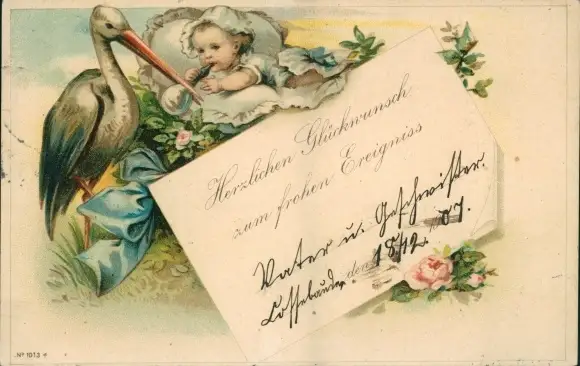 Herzlichen Glückwunsch
zum frohen Ereigniss
Vater u. Geschwister.
Cossebaude, den 18/12. 07.
No 1013